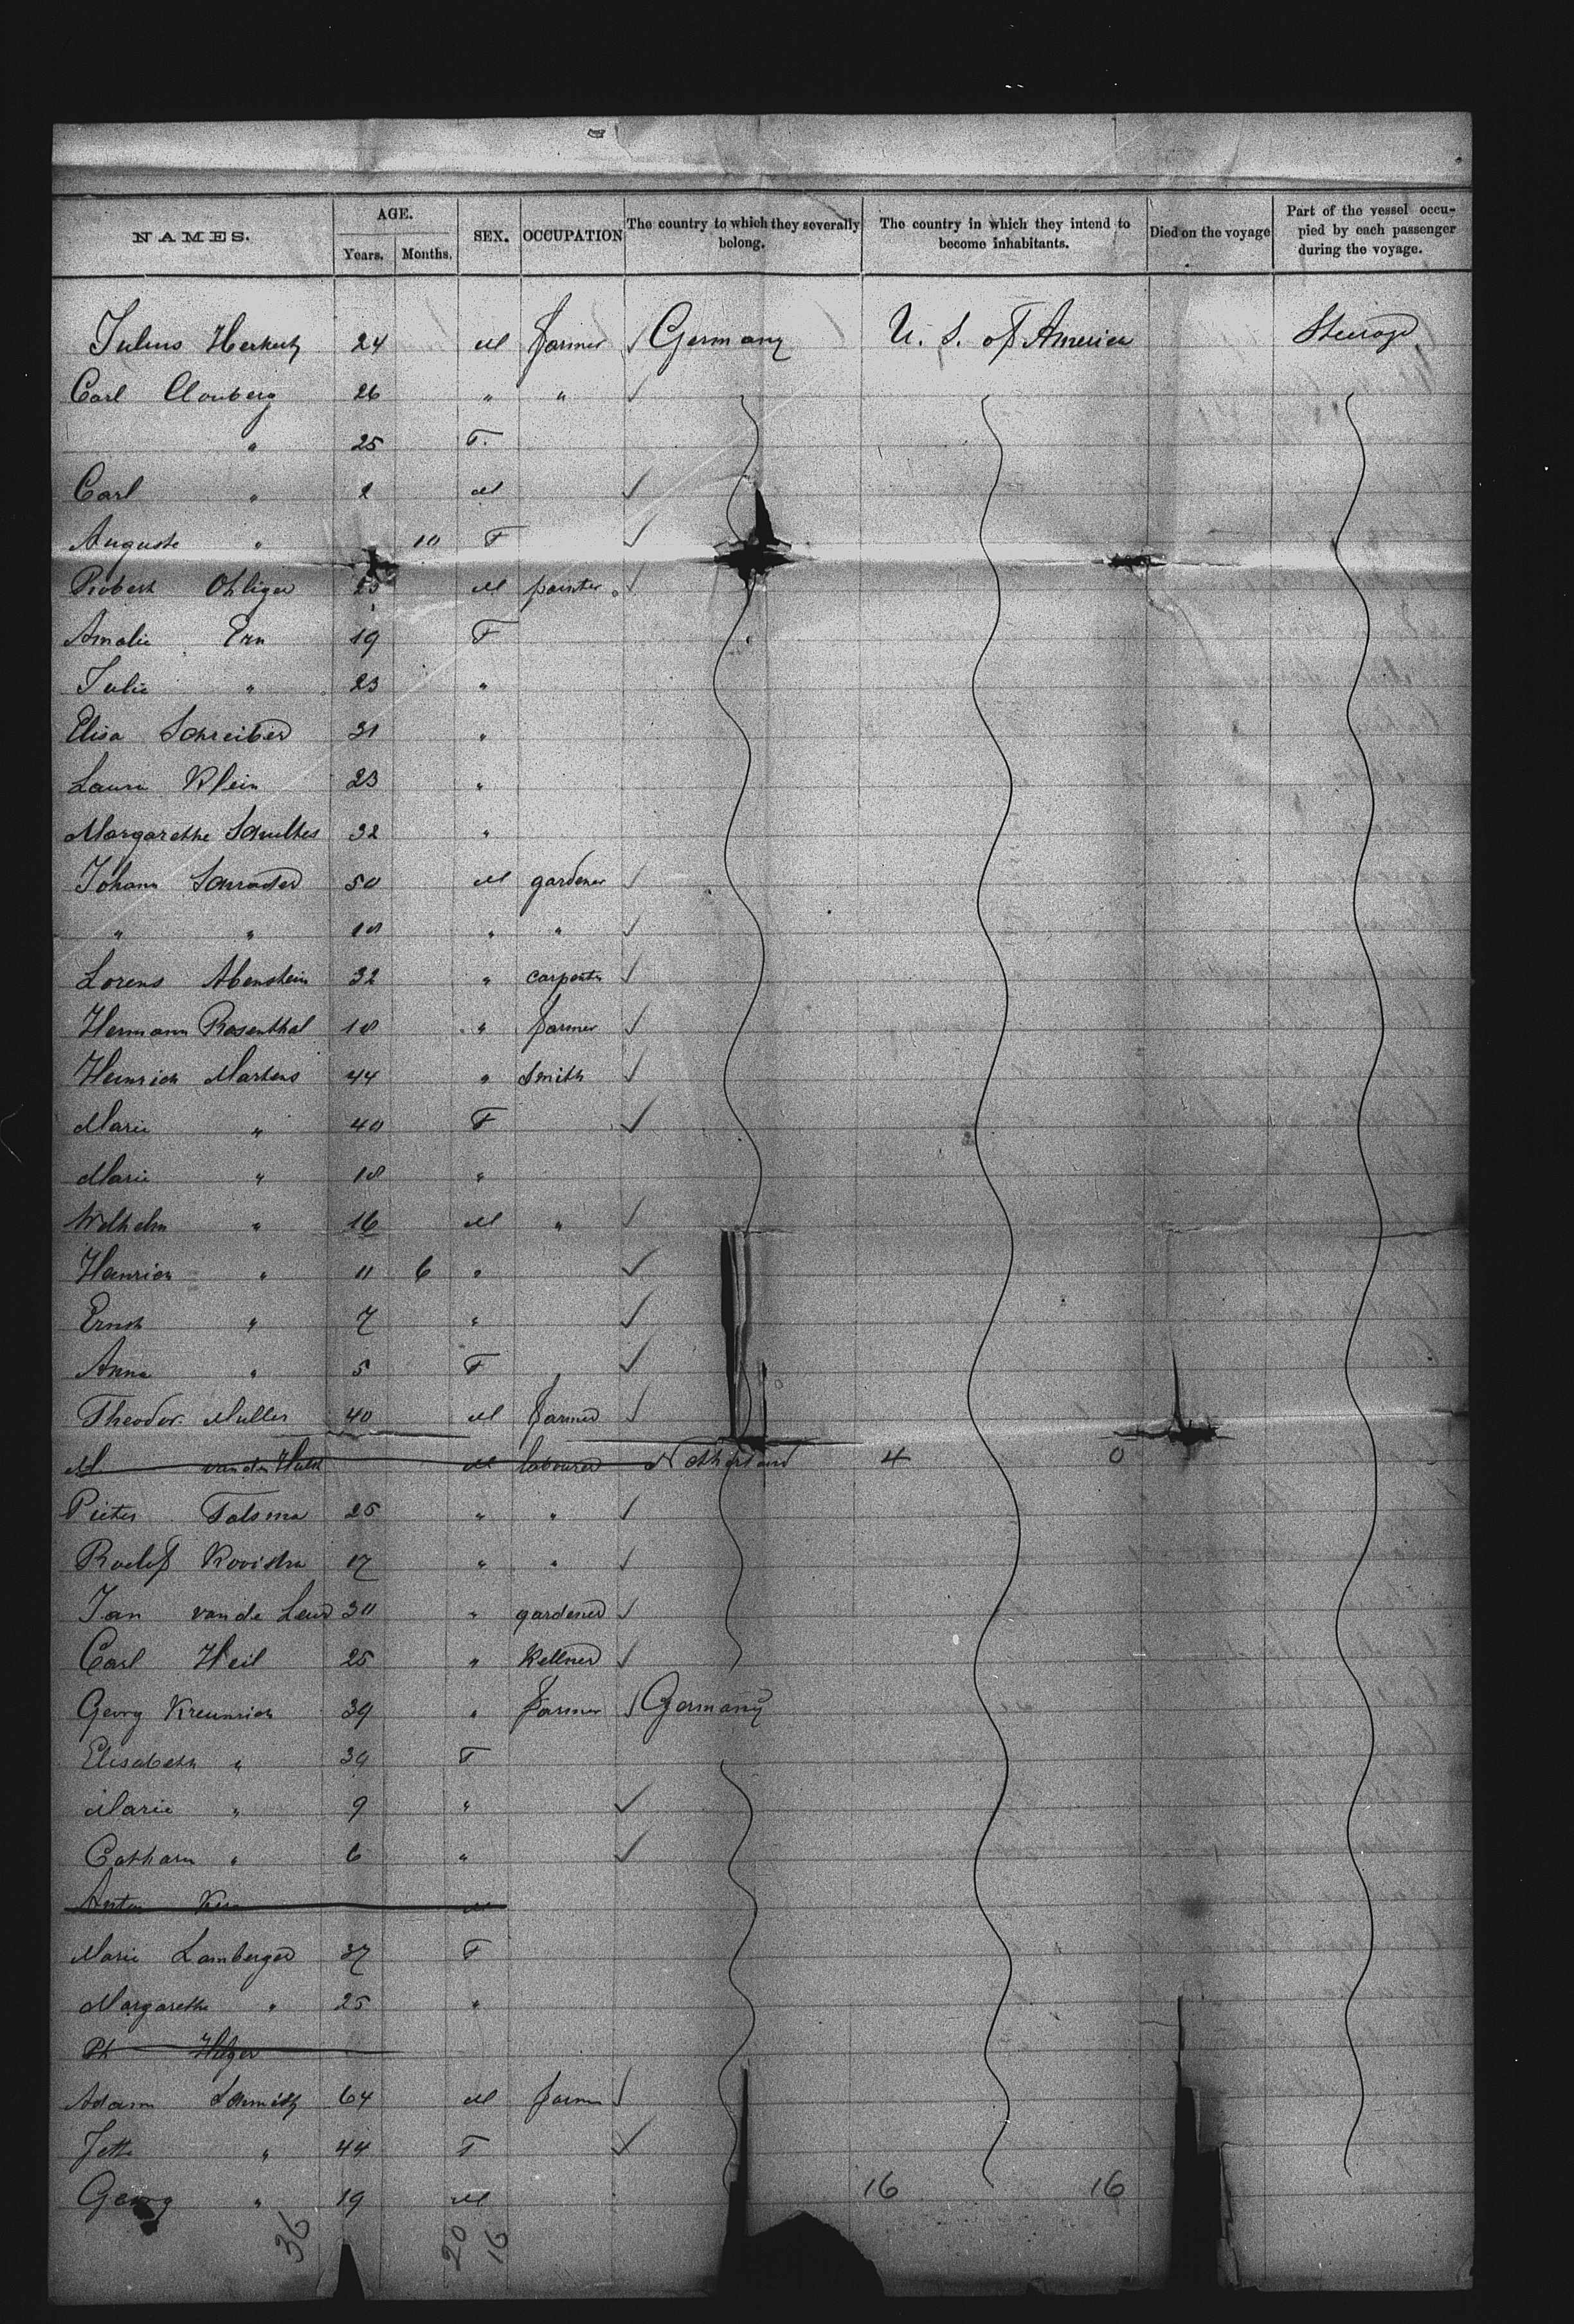 NAMES. AGE. Years. Months. SEX. OCCUPATION The country to which they severally belong. The country in which they intend to become inhabitants. Died on the voyage Part of the vessel occu-pied by each passenger during the voyage.
Julius 24 M farmer ✓ Germany U. S. of America Steerage
Carl Clauberg 26 " " ✓
" 25 F.
Carl " 2 M ✓
Auguste " 10 F ✓
Robert Ohliger 25 M painter ✓
Amalie Ern 19 F
Julie " 23 "
Elisa Schreiber 31 "
Laura Klein 23 "
Margarethe Schultes 32 "
Johann Schrader 50 M gardener ✓
" " 18 " " ✓
Lorens Abenstein 32 " carpenter ✓
Hermann Rosenthal 18 " farmer ✓
Heinrich Martens 44 " Smith ✓
Marie " 40 F ✓
Marie " 18 "
Wilhelm " 16 M " ✓
Heinrich " 11 6 " ✓
Ernst " 7 " ✓
Anna " 5 F ✓
Theodor Muller 40 M farmer ✓
M van der Hulst M labourer Netherland 4 0
Pieter Talsma 25 " " ✓
Roelof Kooistra 17 " " ✓
Jan van de Leur 30 " gardener ✓
Carl Heil 25 " Kellner ✓
Georg Kreunrich 39 " farmer ✓ Germany
Elisabeth " 39 F
Marie " 9 " ✓
Cathara " 6 " ✓
Anton M
Marie Lamberger 37 F
Margarethe " 25 "
Ph Hilger
Adam Schmitz 64 M farmer ✓
Jette " 44 F ✓
Georg " 19 M 16 16
36 20 16